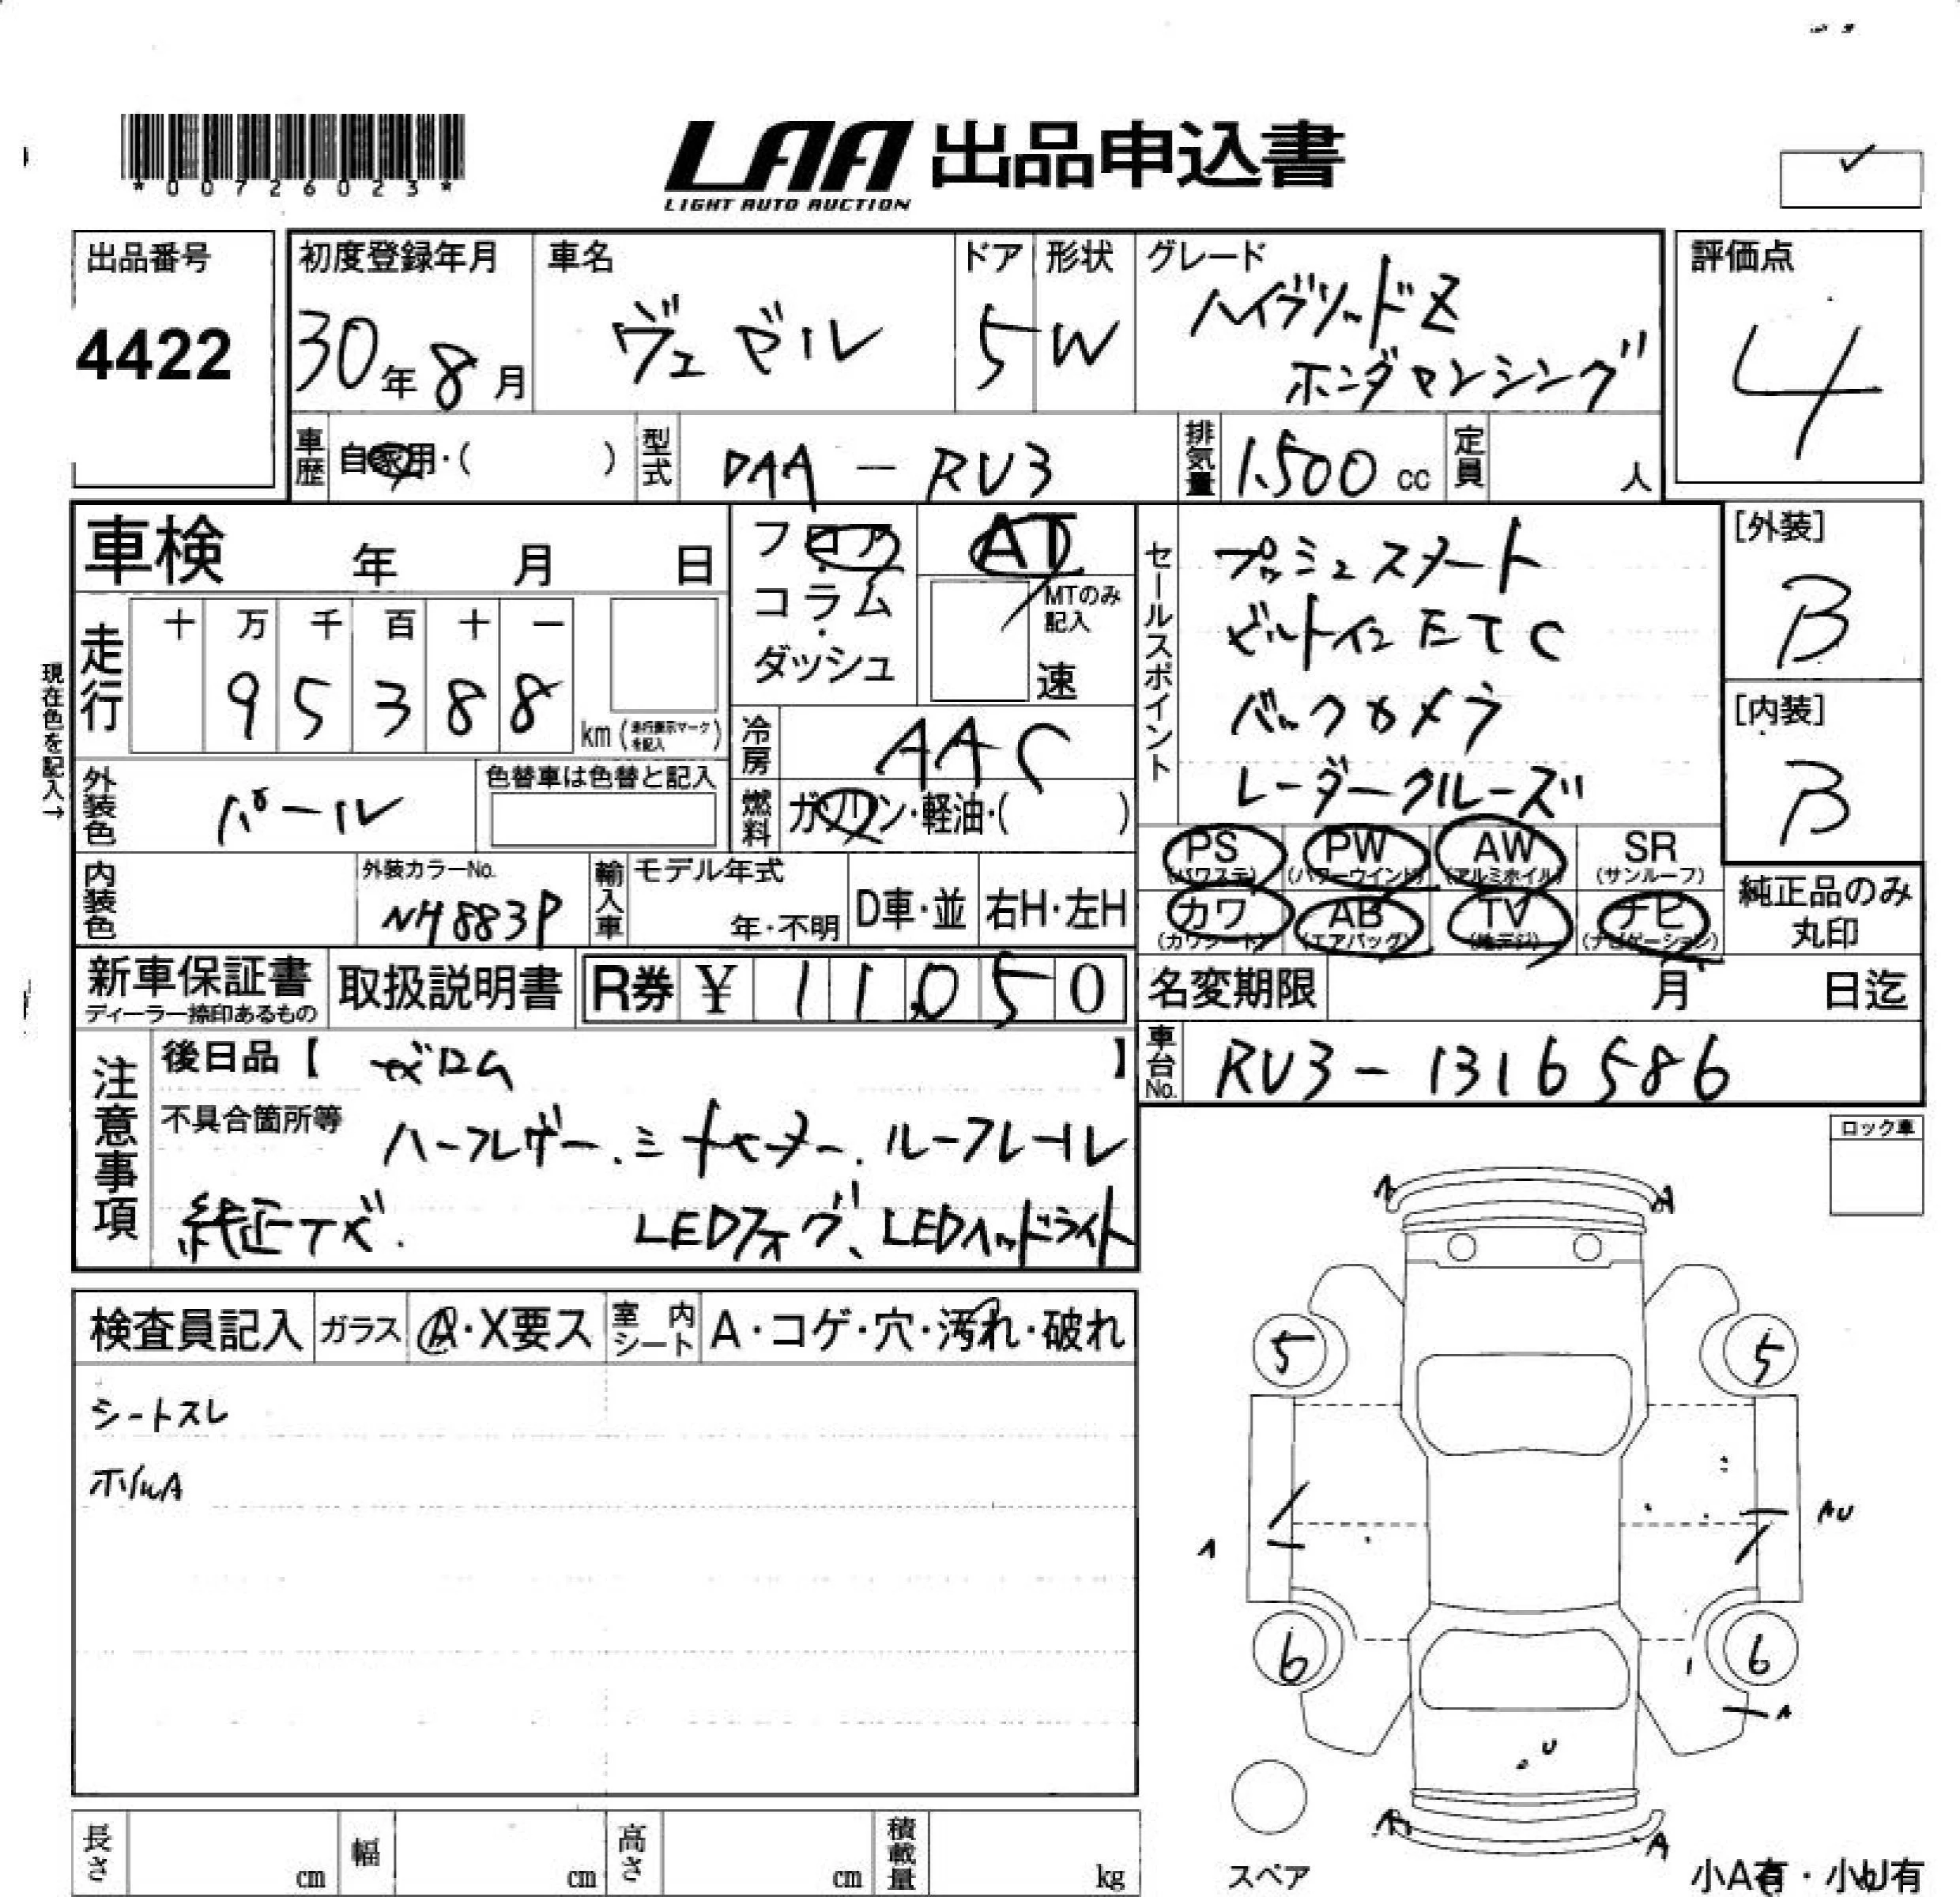 *00726023*
LAA 出品申込書
LIGHT AUTO AUCTION
出品番号
4422
初度登録年月
30年8月
車名
ヴェゼル
ドア
5
形状
W
グレード
ハイブリッドZ
ホンダセンシング
評価点
4
車歴
自家用・( )
型式
DAA-RU3
排気量
1.500 cc
定員
人
車検 年 月 日
フロア・コラム・ダッシュ
AT
MTのみ記入
速
セールスポイント
プッシュスタート
ビルトインETC
バックカメラ
レーダークルーズ
[外装]
B
[内装]
B
現在色を記入→
走行
十 万 千 百 十 一
9 5 3 8 8
km (走行表示マークを記入)
冷房
AAC
外装色
パール
色替車は色替と記入
燃料
ガソリン・軽油・( )
PS (パワステ)
PW (パワーウインド)
AW (アルミホイル)
SR (サンルーフ)
カワ (カワシート)
AB (エアバッグ)
TV (地デジ)
ナビ (ナビゲーション)
純正品のみ
丸印
内装色
外装カラーNo.
NH883P
輸入車
モデル年式
年・不明
D車・並
右H・左H
新車保証書
ディーラー捺印あるもの
取扱説明書
R券 ¥ 11,050
名変期限 月 日迄
車台No.
RU3-1316586
注意事項
後日品【 】
不具合箇所等
ハーフレザー、シートヒーター、ルーフレール
純正ナビ.
LEDフォグ、LEDヘッドライト
ロック車
検査員記入
ガラス
A・X要ス
室内シート
A・コゲ・穴・汚れ・破れ
シートスレ
ホイルA
A
A
5
5
AU
A
6
6
A
U
A
A
スペア
小A有・小U有
長さ cm
幅 cm
高さ cm
積載量 kg